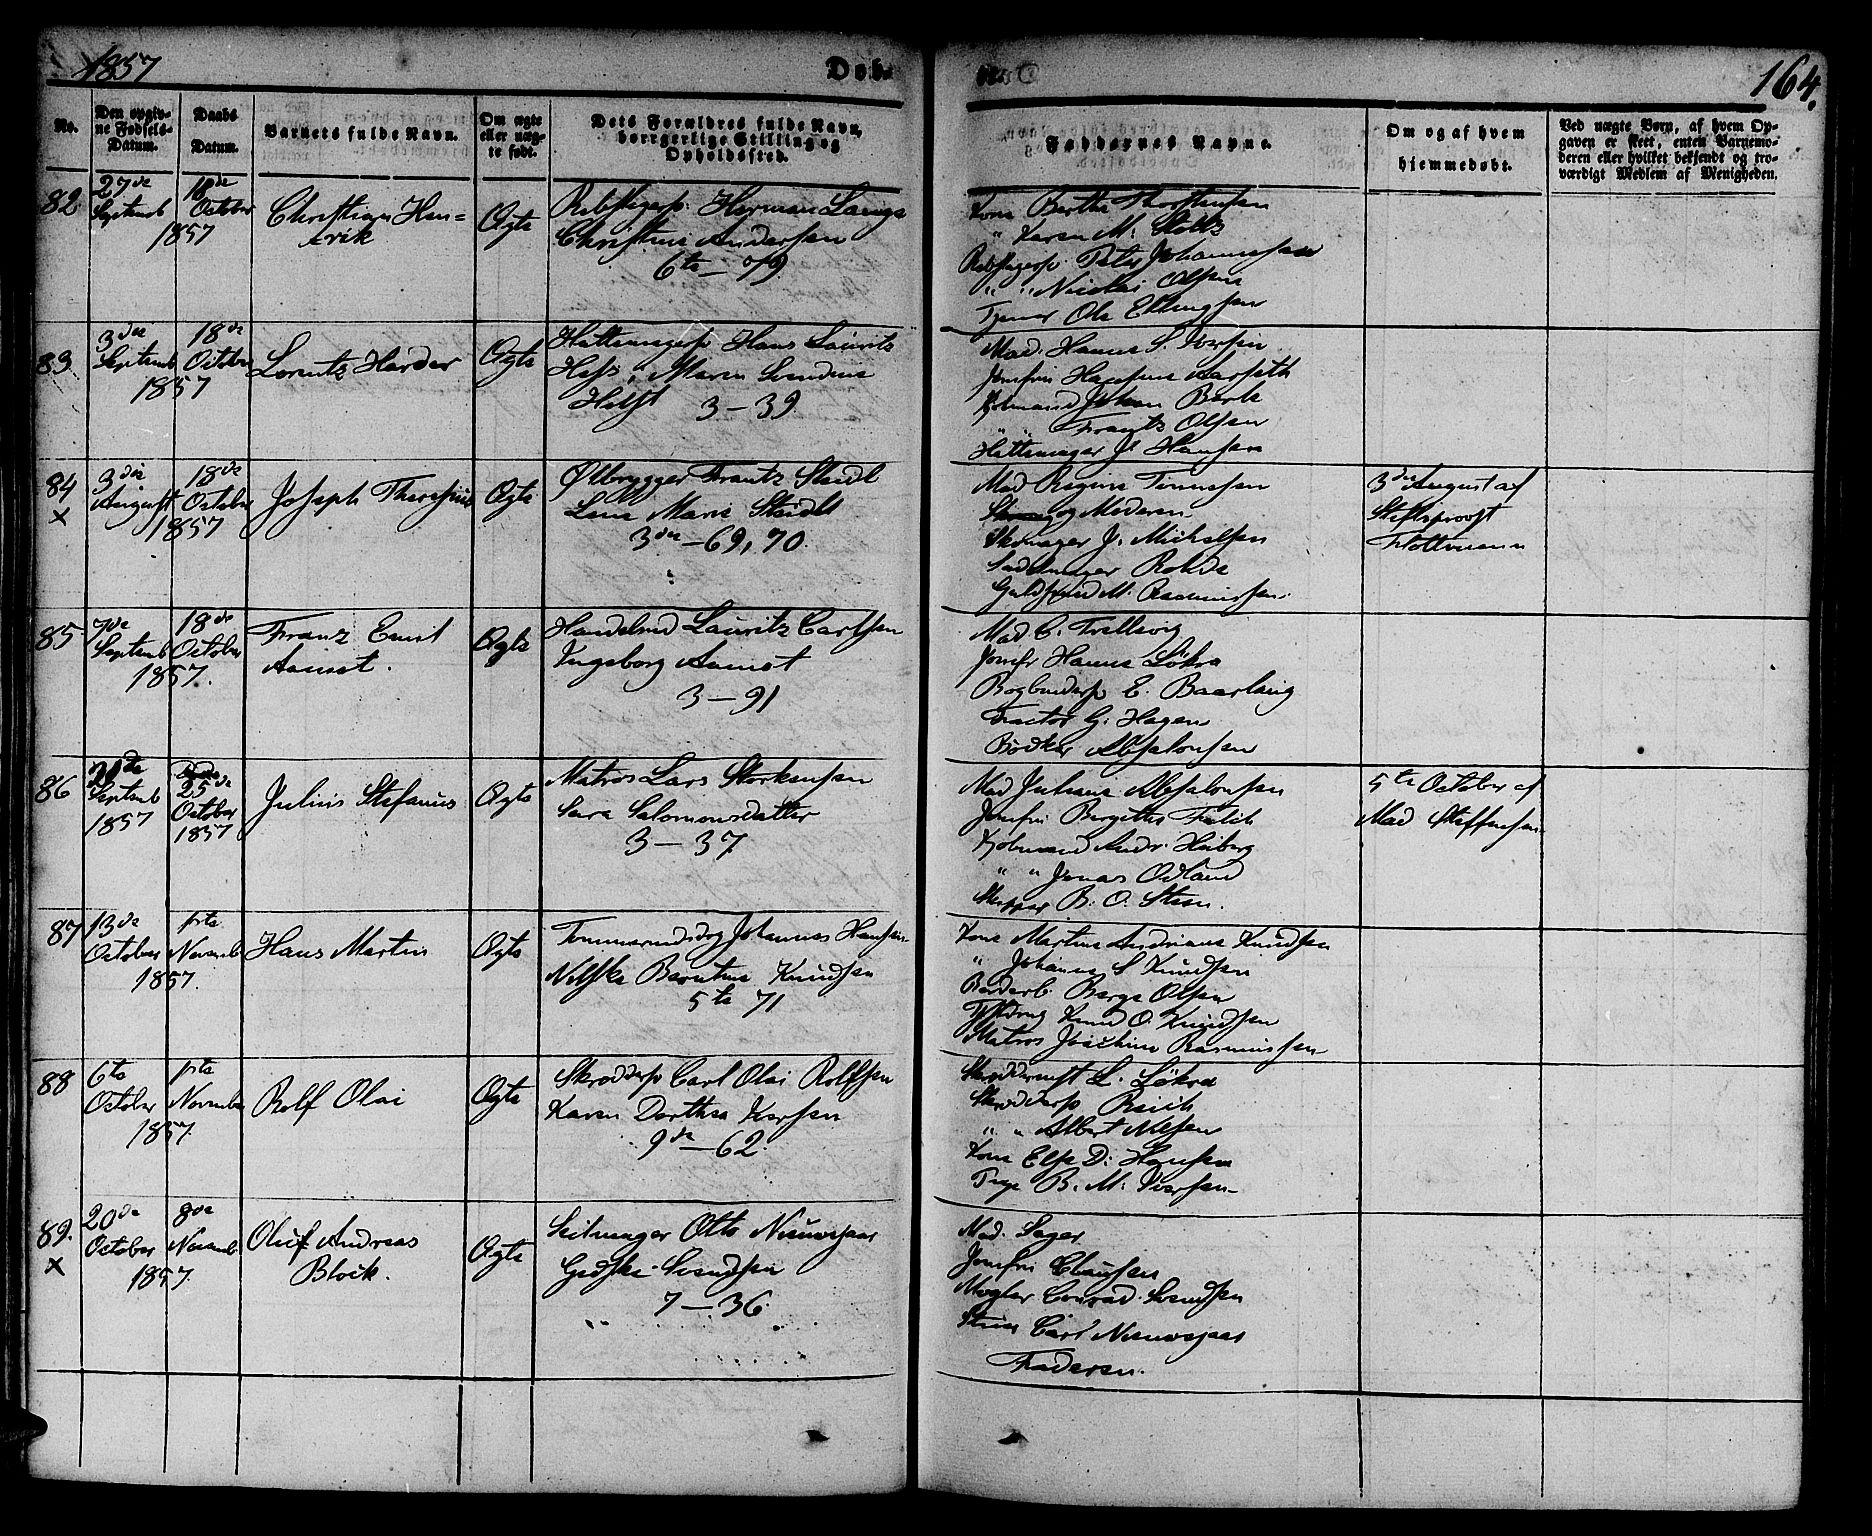 1857
Døb-
164.
No.
Den opgiv-
ne Fødsels-
Datum.
Daabs
Datum.
Barnets fulde Navn.
Om ægte
eller uæg-
te født.
Dets Forældres fulde Navn,
borgerlige Stilling og
Opholdssted.
Faddernes Navne.
Om og af hvem
hjemmedøbt.
Ved uægte Børn, af hvem Op-
gaven er skeet, enten Barnemo-
deren eller hvilket bekjendt og tro-
værdigt Medlem af Menigheden.
82
27de
Septemb
18de
October
1857
Christian Hen-
drik
Ægte
Rebslagersv. Herman Lange
Christine Andersen
6te - 79
Kone Berthe Thorstensen
" Karen M. Stolts
Rebslagersv. Peter Johannesen
" " Nicolai Olsen
Tjener Ole Ellingsen
83
3die
Septemb
18de
October
1857
Lorentz Harder
Ægte
Hattemagersv Hans Lauritz
Hess, Maren Svendine
3 - 39
Mad. Hanne S. Iversen
Jomfru Hansine Aarseth
Kjøbmand Johan Berle
" " Frantz Olsen
Hattemager J. Hansen
84
x
3die
August
18de
October
1857
Joseph Theresius
Ægte
Ølbrygger Frantz Steidl
Lene Marie Steidl
3die - 69, 70.
Mad Regine Tønnesen
og Moderen
Skomager J. Michelsen
Sadelmager Rohde
Guldsmed M. Rasmussen.
3die August af
Stiftsprovst
85
7de
Septemb
18de
October
1857.
Franz Ernst
Aamot.
Ægte
Handelsmd Lauritz Carlsen
Ingeborg Aamot
3 - 91
Mad C. Trellevig
Jomfr Hanne Løkra
Bogbindersv E. Baarlaug
Factor G. Hagen
Bødker Absalonsen
86
Septemb
1857
25de
October
1857
Julius Stefanus
Ægte
Matros Lars Storkersen
Sara Salomonsdatter
3 - 37
Mad Juliane Absalonsen
Jomfru Bergitte Falch
Kjøbmand Andr. Heiberg
" " Jonas Odland
B. O. Steen.
5te October af
Mad Steffensen.
87
13de
October
1ste
Novemb
1857.
Hans Martin
Ægte
Tømmermdsdrg Johannes Hansen
Nilske Berntine Knudsen
5te 71
Kone Martine Andriane Knudsen
" Johanne S Knudsen
Børge Olsen
Knud O. Knudsen
Matros Joachim Rasmussen
88
6te
October
1ste
November
1857.
Rolf Olai
Ægte
Skræddersv Carl Olai Rolfsen
Karen Dorthea Iversen
9de - 62.
Skræddermst L. Løkra
Skræddersv Reich
" " Albert Nilsen
Kone Else D. Hansen
Pige B. M. Iversen
89.
x
20de
October
8de
Novemb
1857.
Oluf Andreas
Block.
Ægte
Seilmager Otto Nieuwejaar
Gjedske Svendsen
7 - 36.
Mad. Sager
Jomfru Clausen
Mægler Conrad Svendsen
Carl Nieuwejaar
Faderen.